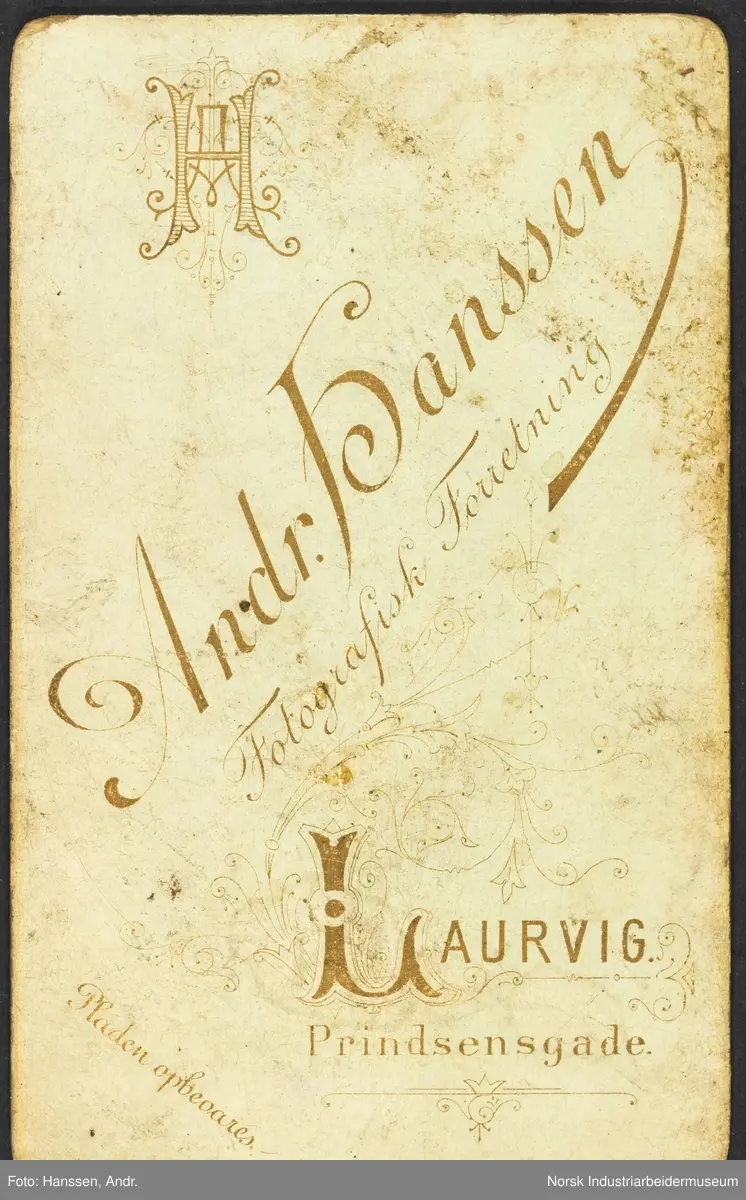 AH
Andr. Hanssen
Fotografisk Forretning
LAURVIG.
Prindsensgade.
Pladen opbevares.
Foto: Hanssen, Andr.
Norsk Industriarbeidermuseum